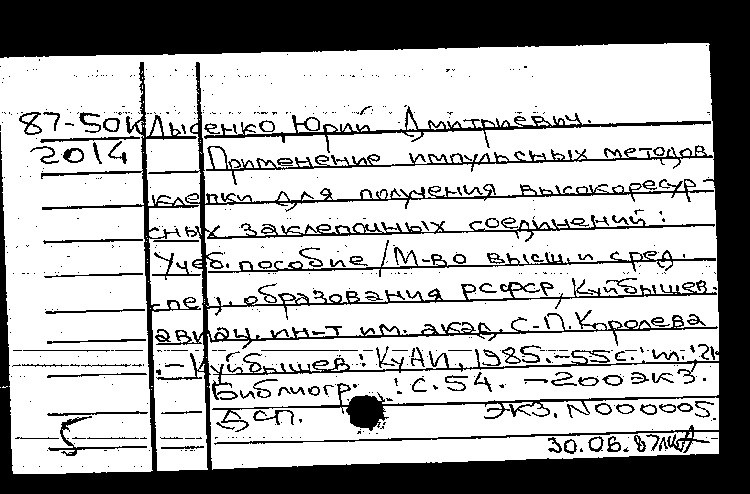 87-50к Лысенко, Юрий Дмитриевич.
2014 Применение импульсных методов
клепки для получения высокоресур-
сных заклепочных соединений:
Учеб. пособие / М-во высш. и сред.
спец. образования РСФСР, Куйбышев.
авиац. ин-т им. акад. С.П. Королева
.- Куйбышев: КуАИ, 1985.-55с.: ил.; 21
Библиогр.: с.54. - 200экз.
ДСП. Экз. N000005.
5
30.06.87